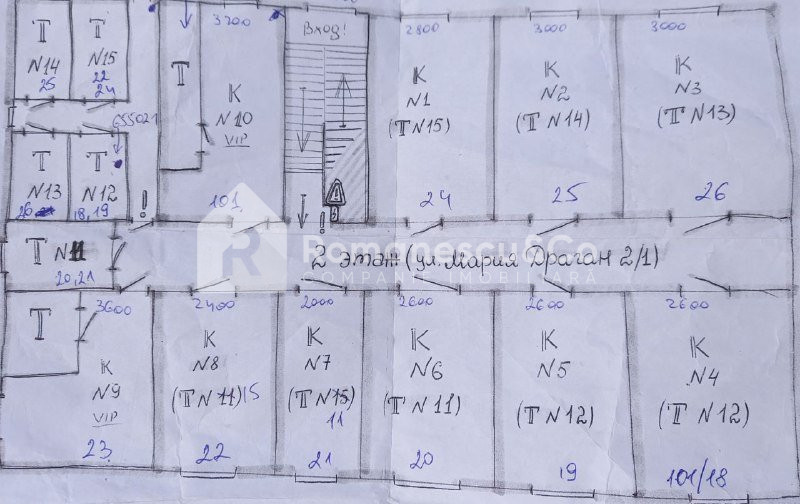 Т
N14
25
Т
N15
22
24
Т
3700
К
N10
VIP
101
Вход!
2800
К
N1
(Т N15)
24
3000
К
N2
(Т N14)
25
3000
К
N3
(Т N13)
26
Т
N13
26
Т
N12
18,19
!
!
Т N11
20,21
2 этаж (ул. Мария Драган 2/1)
Romanescu&Co
COMPANIE IMOBILIARĂ
Т
3600
К
N9
VIP
23
2400
К
N8
(Т N 11) 15
22
2000
К
N7
(Т N15)
11
21
2600
К
N6
(Т N 11)
20
2600
К
N5
(Т N12)
19
2600
К
N4
(Т N12)
101/18